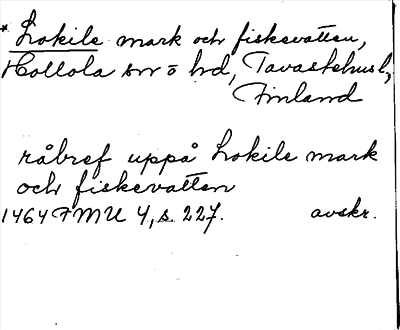 * Lokile mark och fiskevatten,
Hollola sn o hd, Tavastehus l,
Finland
råbref uppå Lokile mark
och fiskevatten
1464 FMU 4, s. 227. avskr.